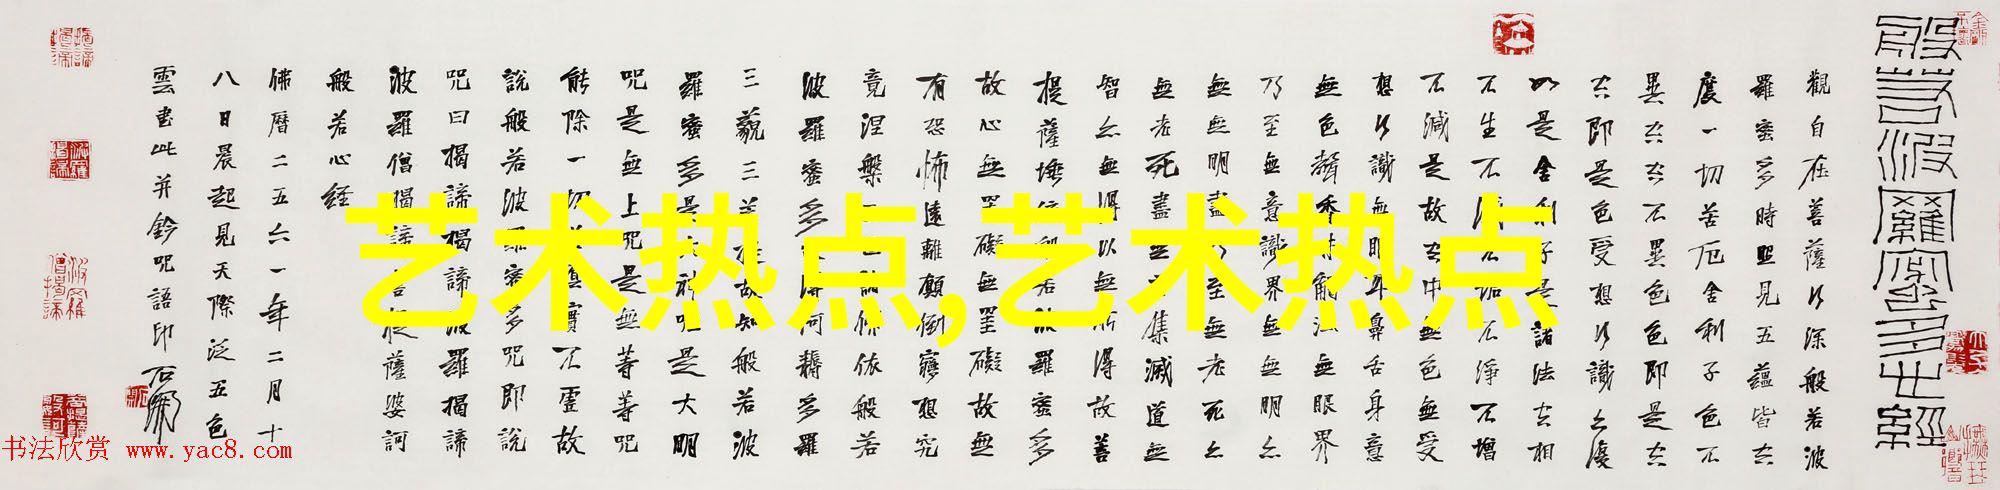 般若波羅蜜多心經
觀自在菩薩行深般若波
羅蜜多時照見五蘊皆空
度一切苦厄舍利子色不
異空空不異色色即是空
空即是色受想行識亦復
如是舍利子是諸法空相
不生不滅不垢不淨不增
不減是故空中無色無受
想行識無眼耳鼻舌身意
無色聲香味觸法無眼界
乃至無意識界無無明亦
無無明盡乃至無老死亦
無老死盡無苦集滅道無
智亦無得以無所得故菩
提薩埵依般若波羅蜜多
故心無罣礙無罣礙故無
有恐怖遠離顛倒夢想究
竟涅槃三世諸佛依般若
波羅蜜多故得阿耨多羅
三藐三菩提故知般若波
羅蜜多是大神咒是大明
咒是無上咒是無等等咒
能除一切苦真實不虛故
說般若波羅蜜多咒即說
咒曰揭諦揭諦波羅揭諦
波羅僧揭諦菩提薩婆訶
般若心経
佛曆二五六一年二月十
八日晨起見天際泛五色
雲書此并鈐咒語印 石開
艺术热点,艺术热点
书法欣赏 www.yac8.com